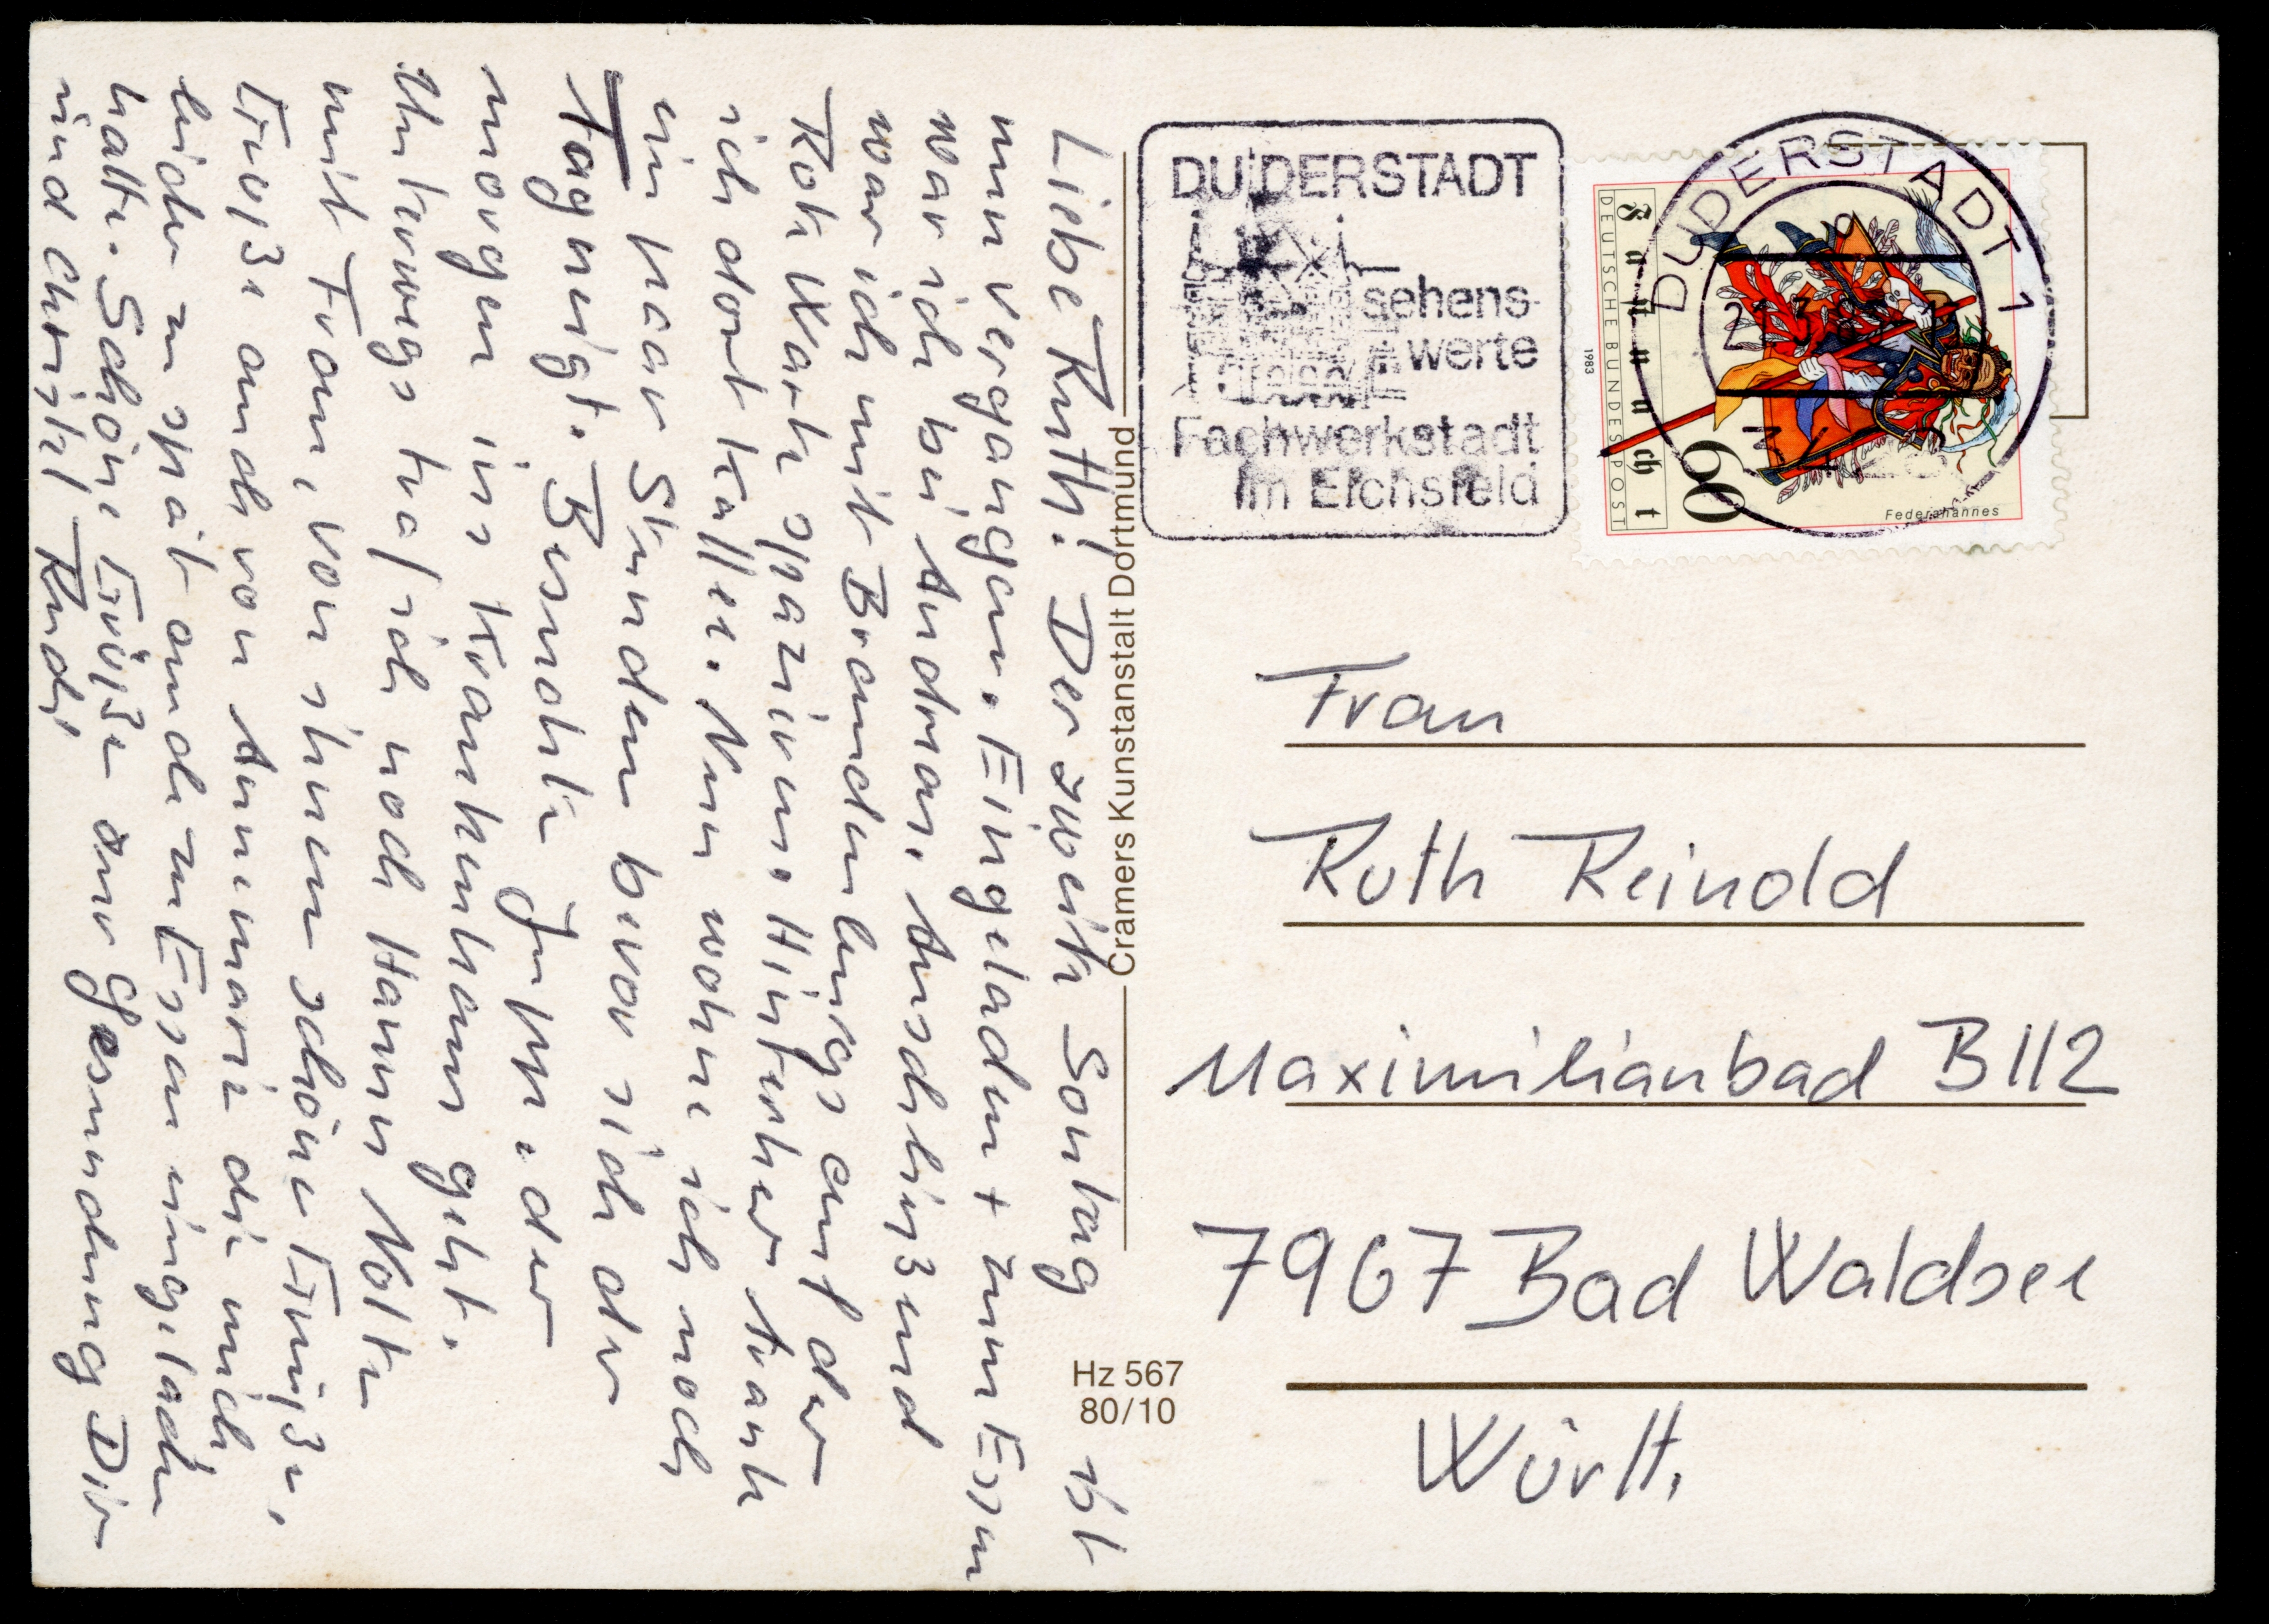 Liebe Ruth! Der zweite Sonntag ist
nun vergangen. Eingeladen + zum Essen
war ich bei Andreas. Anschließend
war ich mit Brandenburgs auf der
Rote Warte spazieren. Hinterher trank
ich dort Kaffee. Nun wohne ich noch
ein paar Stunden bevor sich der
Tag neigt. Besuchte Jupp e der
morgen ins Krankenhaus geht.
Unterwegs traf ich noch Hanns Nolte
mit Frau, von ihnen schöne Grüße,
Grüße auch von Annemarie die mich
leider zu spät auch zu Essen eingeladen
hatte. Schöne Grüße und Gesundung Dir
und Christel Rudi
Cramers Kunstanstalt Dortmund
Hz 567
80/10
DUDERSTADT
sehens-
werte
Fachwerkstadt
im Eichsfeld
DUDERSTADT 1
Fastnacht
DEUTSCHE BUNDESPOST
1983
60
Federahannes
Frau
Ruth Reinold
Maximilianbad B112
7967 Bad Waldsee
Württ.